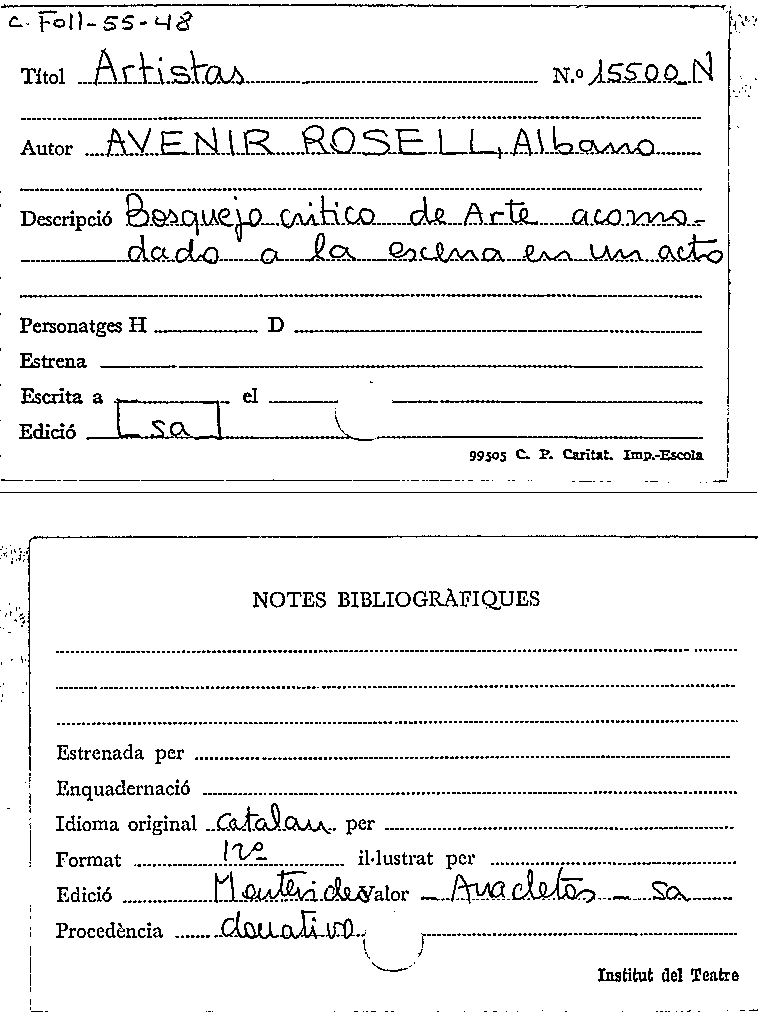 C. Foll-55-48
Títol Artistas N.º 15500-N
Autor AVENIR ROSELL, Albano
Descripció Bosquejo critico de Arte acomo-
dado a la escena en un acto
Personatges H D
Estrena
Escrita a el
Edició sa
99505 C. P. Caritat. Imp.-Escola
NOTES BIBLIOGRÀFIQUES
Estrenada per
Enquadernació
Idioma original catalan per
Format 12º il·lustrat per
Edició Montevideo Valor - Anacletos - sa
Procedència donativo
Institut del Teatre